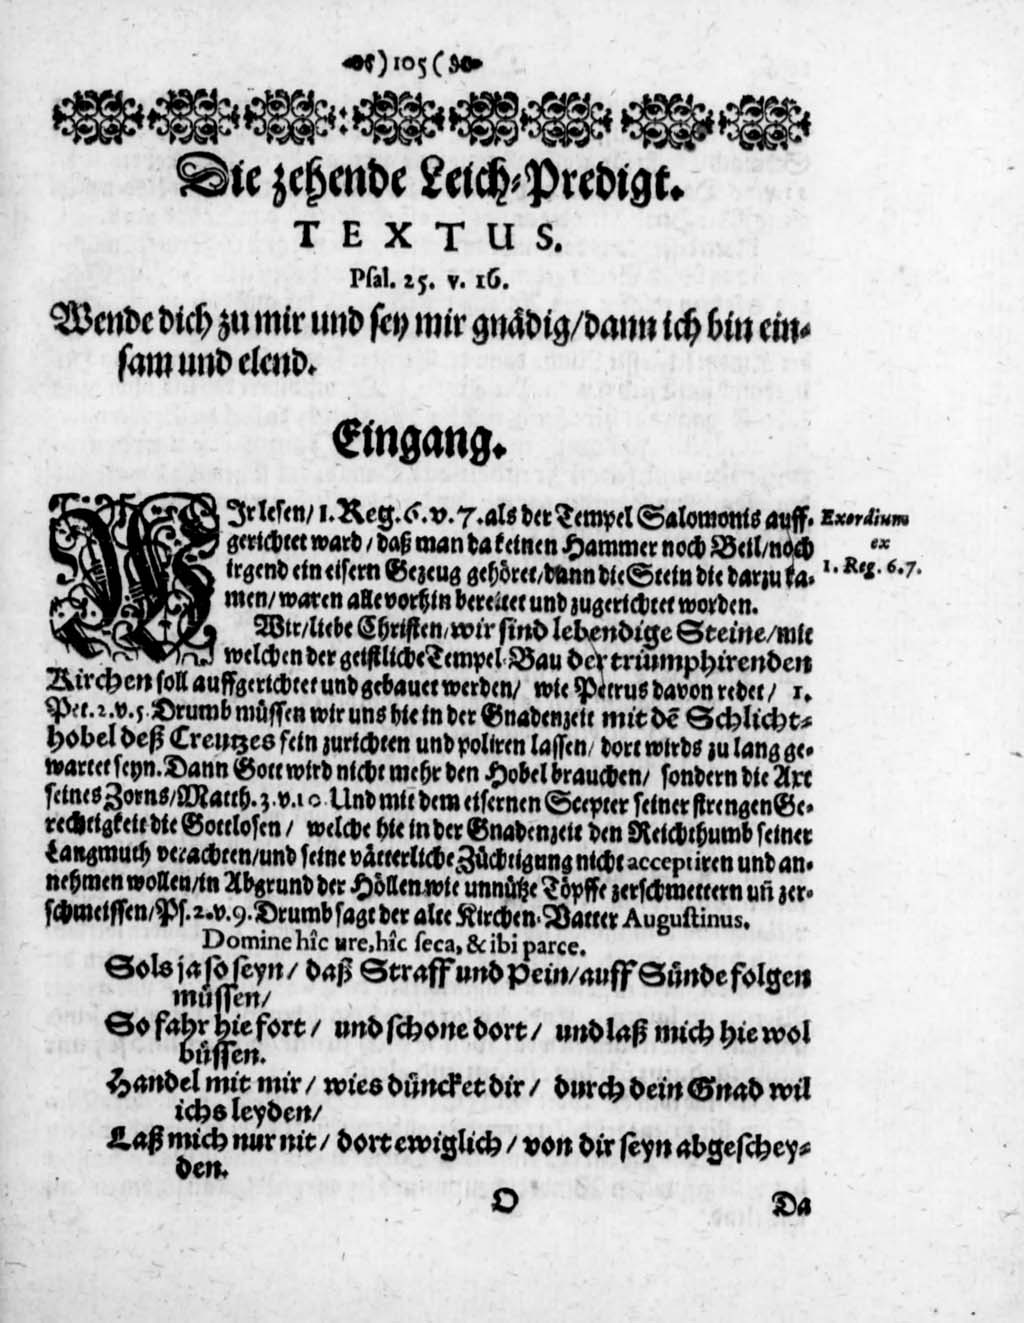 )105(
Die zehende Leich-Predigt.
TEXTUS.
Psal. 25. v. 16.
Wende dich zu mir und sey mir gnädig/dann ich bin ein-
sam und elend.
Eingang.
WIr lesen/ 1. Reg. 6. v. 7. als der Tempel Salomonis auff-
gerichtet ward/ daß man da keinen Hammer noch Beil/noch
irgend ein eisern Gezeug gehöret/dann die Stein die darzu ka-
men/ waren alle vorhin bereitet und zugerichtet worden.
Exordium
ex
1. Reg. 6. 7.
Wir/liebe Christen/wir sind lebendige Steine/mit
welchen der geistliche Tempel-Bau der triumphirenden
Kirchen soll auffgerichtet und gebauet werden/ wie Petrus davon redet/ 1.
Pet. 2. v. 5. Drumb müssen wir uns hie in der Gnadenzeit mit dẽ Schlicht-
hobel deß Creutzes fein zurichten und poliren lassen/ dort wirds zu lang ge-
wartet seyn. Dann Gott wird nicht mehr den Hobel brauchen/ sondern die Axt
seines Zorns/Matth. 3. v. 10. Und mit dem eisernen Scepter seiner strengen Ge-
rechtigkeit die Gottlosen/ welche hie in der Gnadenzeit den Reichthumb seiner
Langmuth verachten/und seine vätterliche Züchtigung nicht acceptiren und an-
nehmen wollen/in Abgrund der Höllen wie unnütze Töpffe zerschmettern uñ zer-
schmeissen/Ps. 2. v. 9. Drumb sagt der alte Kirchen-Vatter Augustinus.
Domine hîc ure, hîc seca, & ibi parce.
Sols ja so seyn/ daß Straff und Pein/auff Sünde folgen
müssen/
So fahr hie fort/ und schone dort/ und laß mich hie wol
büssen.
Handel mit mir/ wies düncket dir/ durch dein Gnad wil
ichs leyden/
Laß mich nur nit/ dort ewiglich/ von dir seyn abgeschey-
den.
O
Da